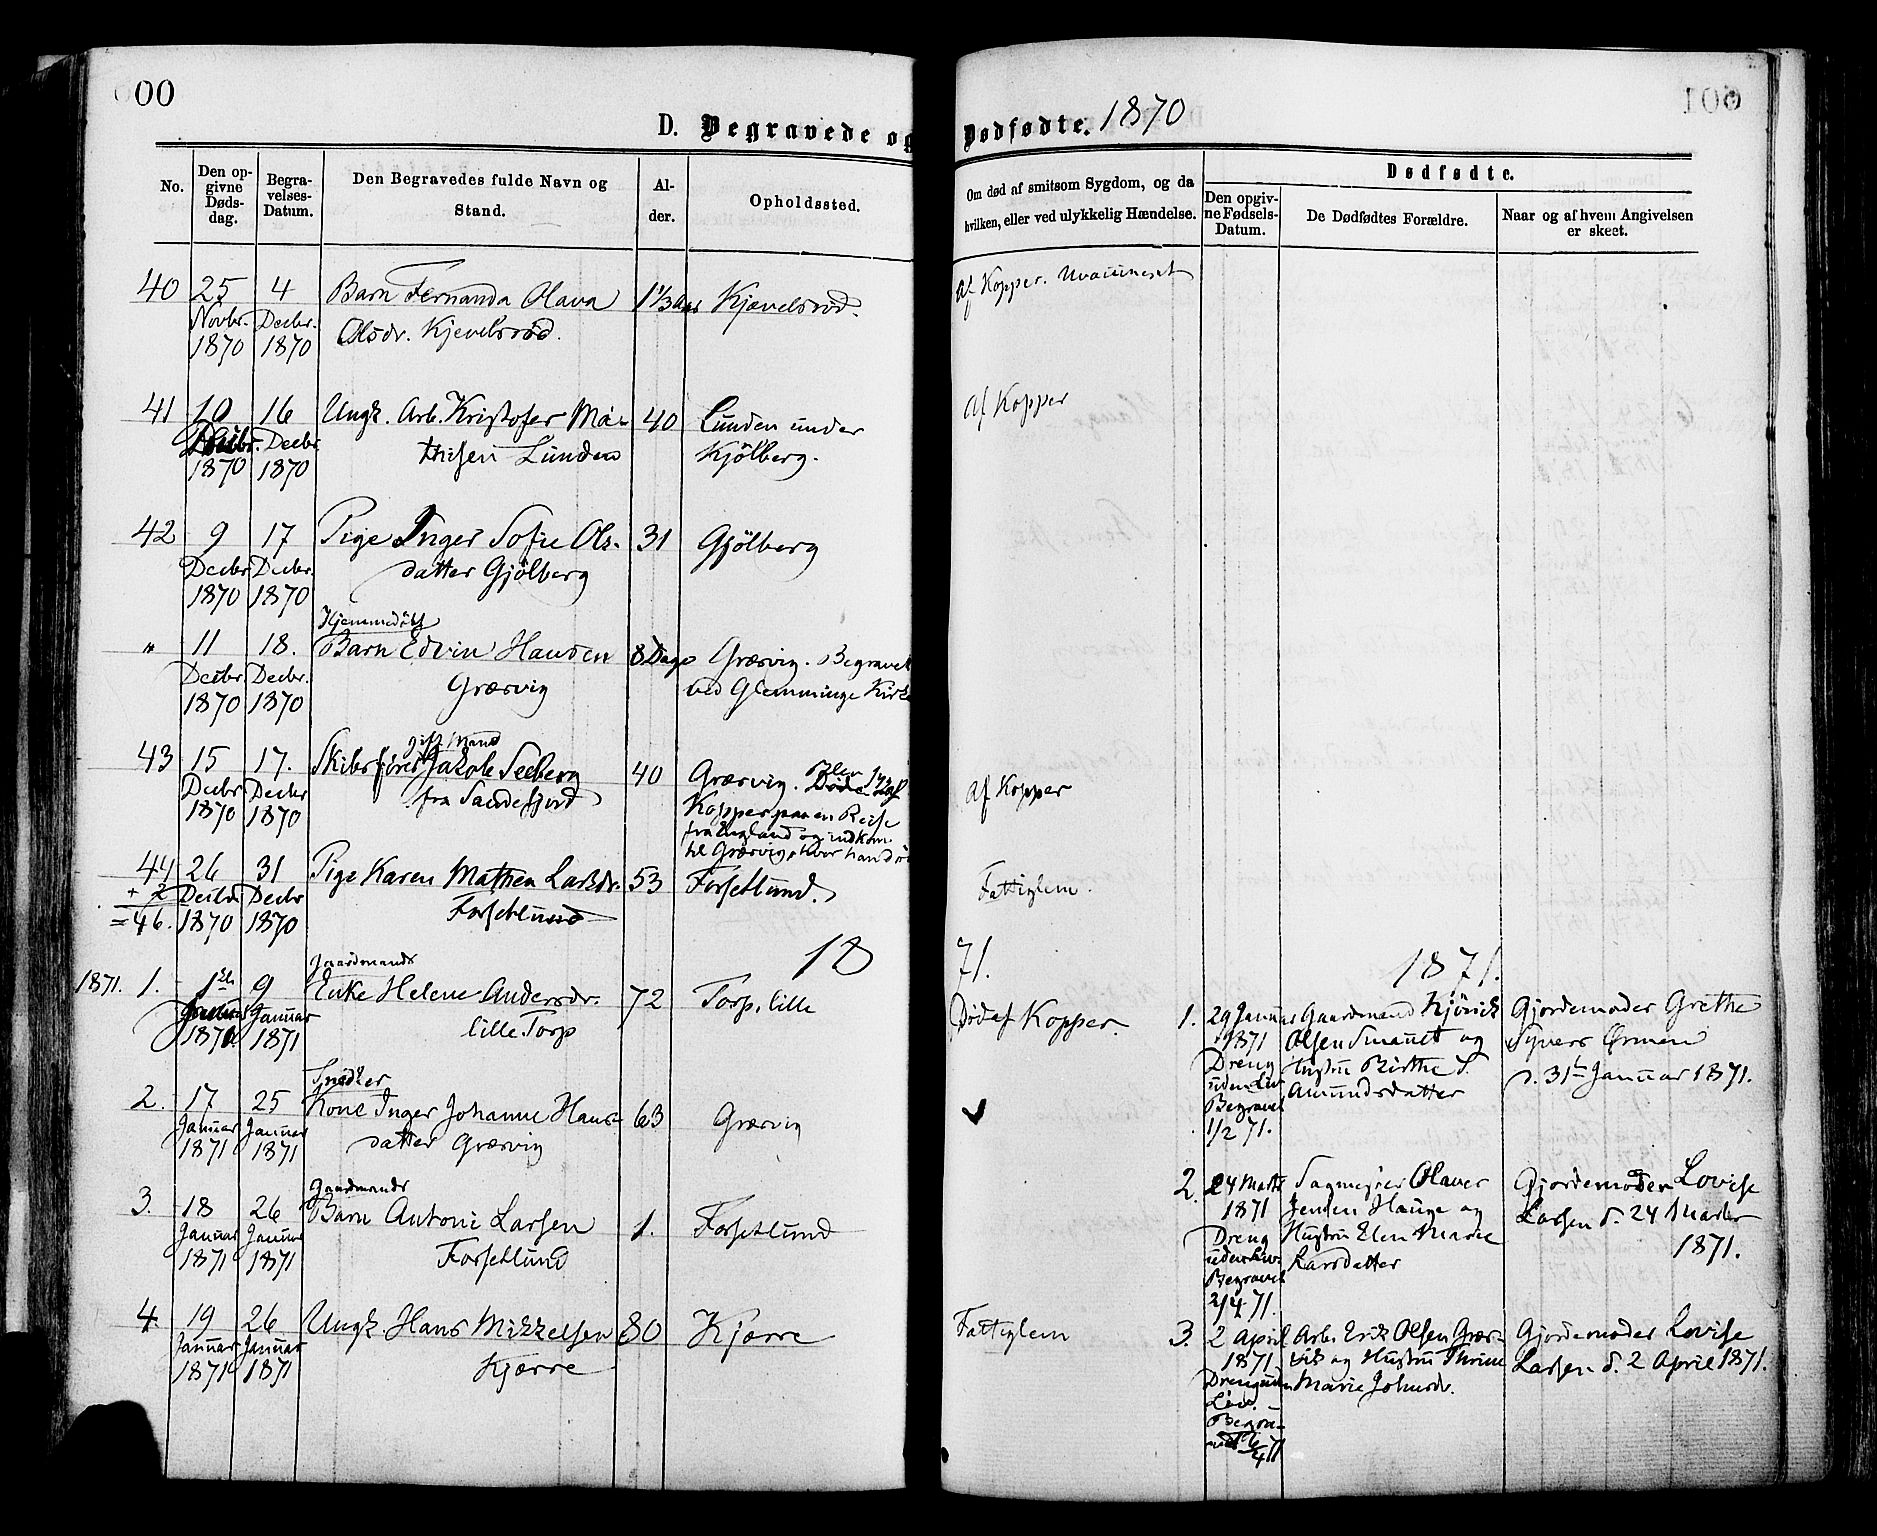 00
D. Begravede og
Dødfødte. 1870
No.
Den op-
givne
Døds-
dag.
Begra-
velses-
Datum.
Den Begravedes fulde Navn og
Stand.
Al-
der.
Opholdssted.
Om død af smitsom Sygdom, og da
hvilken, eller ved ulykkelig Hændelse.
Dødfødte.
Den opgiv-
ne Fødsels-
Datum.
De Dødfødtes Forældre.
Naar og af hvem Angivelsen
er skeet.
40 25 4 Barn Fernanda Olava 1 1/3 Aar Kjævelsrød. Af Kopper. Uvaccineret
Novbr. Decbr. Olsdr. Kjevelsrød.
1870 1870
41 10 16 Ungk. Arb. Kristofer Ma- 40 Lunden under Af Kopper
Decbr. Decbr thisen Lunden Kjölberg.
1870 1870
42 9 17 Pige Inger Sofie Ols- 31 Gjölberg
Decbr Decbr. datter Gjölberg
1870 1870
Hjemmedøbt
" 11 18. Barn Edvin Hansen 8 Dage Græsvig. Begravet
Decbr Decbr. Græsvig ved Glemminge Kirke
1870 1870
gift Mand
43 15 17. Skibsfører Jakob Seeberg 40 Græsvig. Blev syg af Af Kopper
Decbr Decbr fra Sandefjord Kopper paa en Reise
1870 1870 fra England og indkom
til Græsvig, hvor han d
44 26 31 Pige Karen Mathea Larsdr. 53 Forsetlund. Fattiglem.
+ 2 Decbr Decbr Forsetlund
= 46. 1870 1870
18 71. 1871.
Gaardmands
1871. 1. 1ste 9 Enke Helene Andersdr. 72 Torp, lille Död af Kopper.
Januar Januar lille Torp
1871. 1871
1. 29 Januar Gaardmand Gjördemoder Grethe
1871 Olsen Smauet og Syvers Ørmen
Dreng Hustru Birthe S. d. 31te Januar 1871.
uden Liv Amundsdatter
Begravet
1/2 71.
Snedker
2. 17 25 Kone Inger Johanne Hans- 63 Græsvig
Januar Januar datter Græsvig
1871 1871
Gaardmands
3. 18 26 Barn Antoni Larsen 1. Forsetlund
Januar Januar Forsetlund
1871 1871
2. 24 Marts Sagmester Olaves Gjordemoder Lovise
1871 Jensen Hauge og Larsen d. 24 Marts
Dreng Hustru Elen Marie 1871.
uden Liv. Larsdatter
Begravet
2/4 71.
4. 19 26 Ungk Hans Mikkelsen 80 Kjærre Fattiglem
Januar Januar Kjærre
1871 1871
3. 2 April Arb. Erik Olsen Græs- Gjordemoder Lovise
1871. vik og Hustru Thrine Larsen d. 2 April 1871.
Dreng uden Marie Johnsdr.
Liv.
Begra-
vet